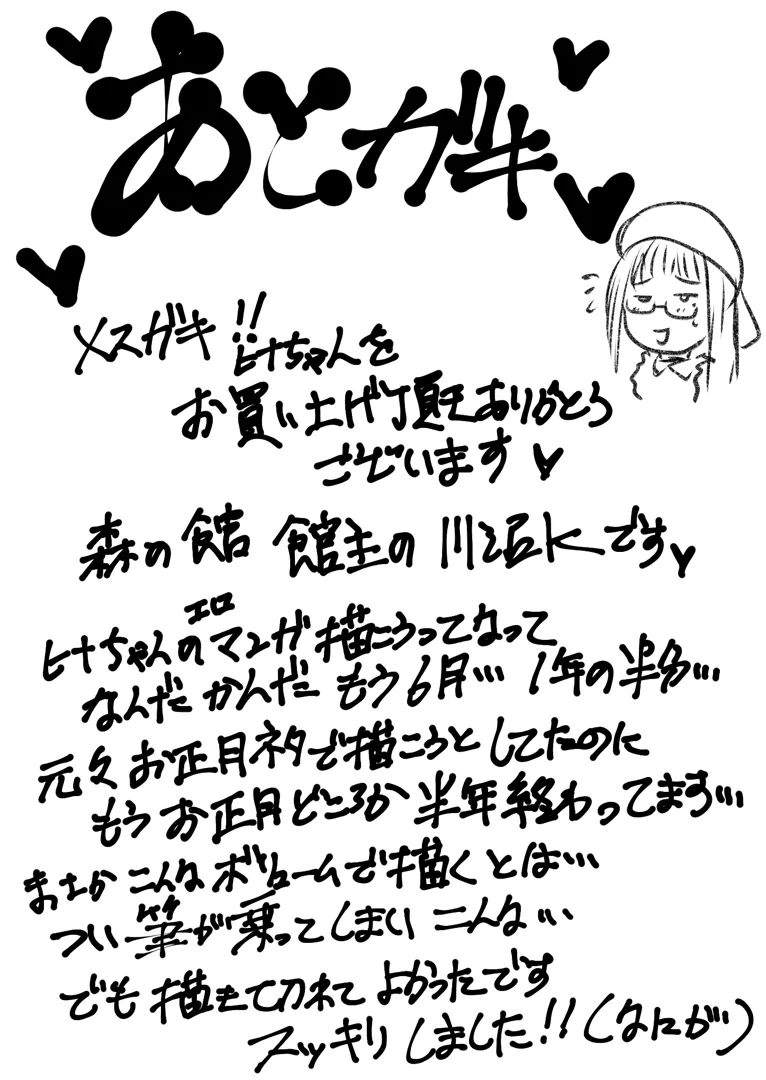 おとガキ
メスガキ!!
ヒナちゃんを
お買い上げ頂きありがとう
ございます♥
森の館 館主の 川沼Kです♥
ヒナちゃんのエロマンガ描こうってなって
なんだかんだ もう6月… 1年の半分…
元々お正月ネタで描こうとしてたのに
もうお正月どころか半年終わってます…
まさかこんなボリュームで描くとは…
つい筆が乗ってしまいこんな…
でも描きて切れて よかったです
スッキリしました!!(なにが)